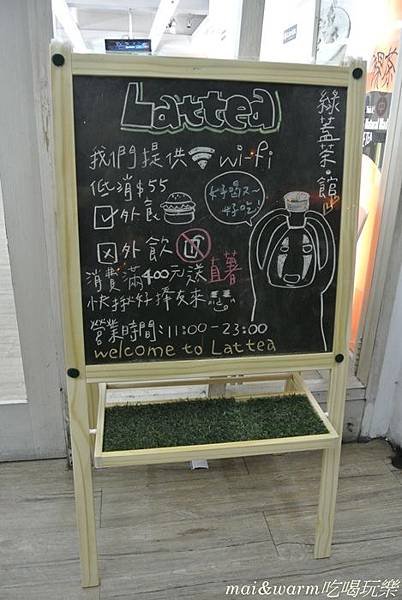 Lattea
綠蓋茶·館
我們提供 wi-fi
低消$55
好喝又~
好吃!
外食
外飲
消費滿400元送直薯
快揪好捧友來
營業時間:11:00-23:00
welcome to Lattea
mai&warm吃喝玩樂